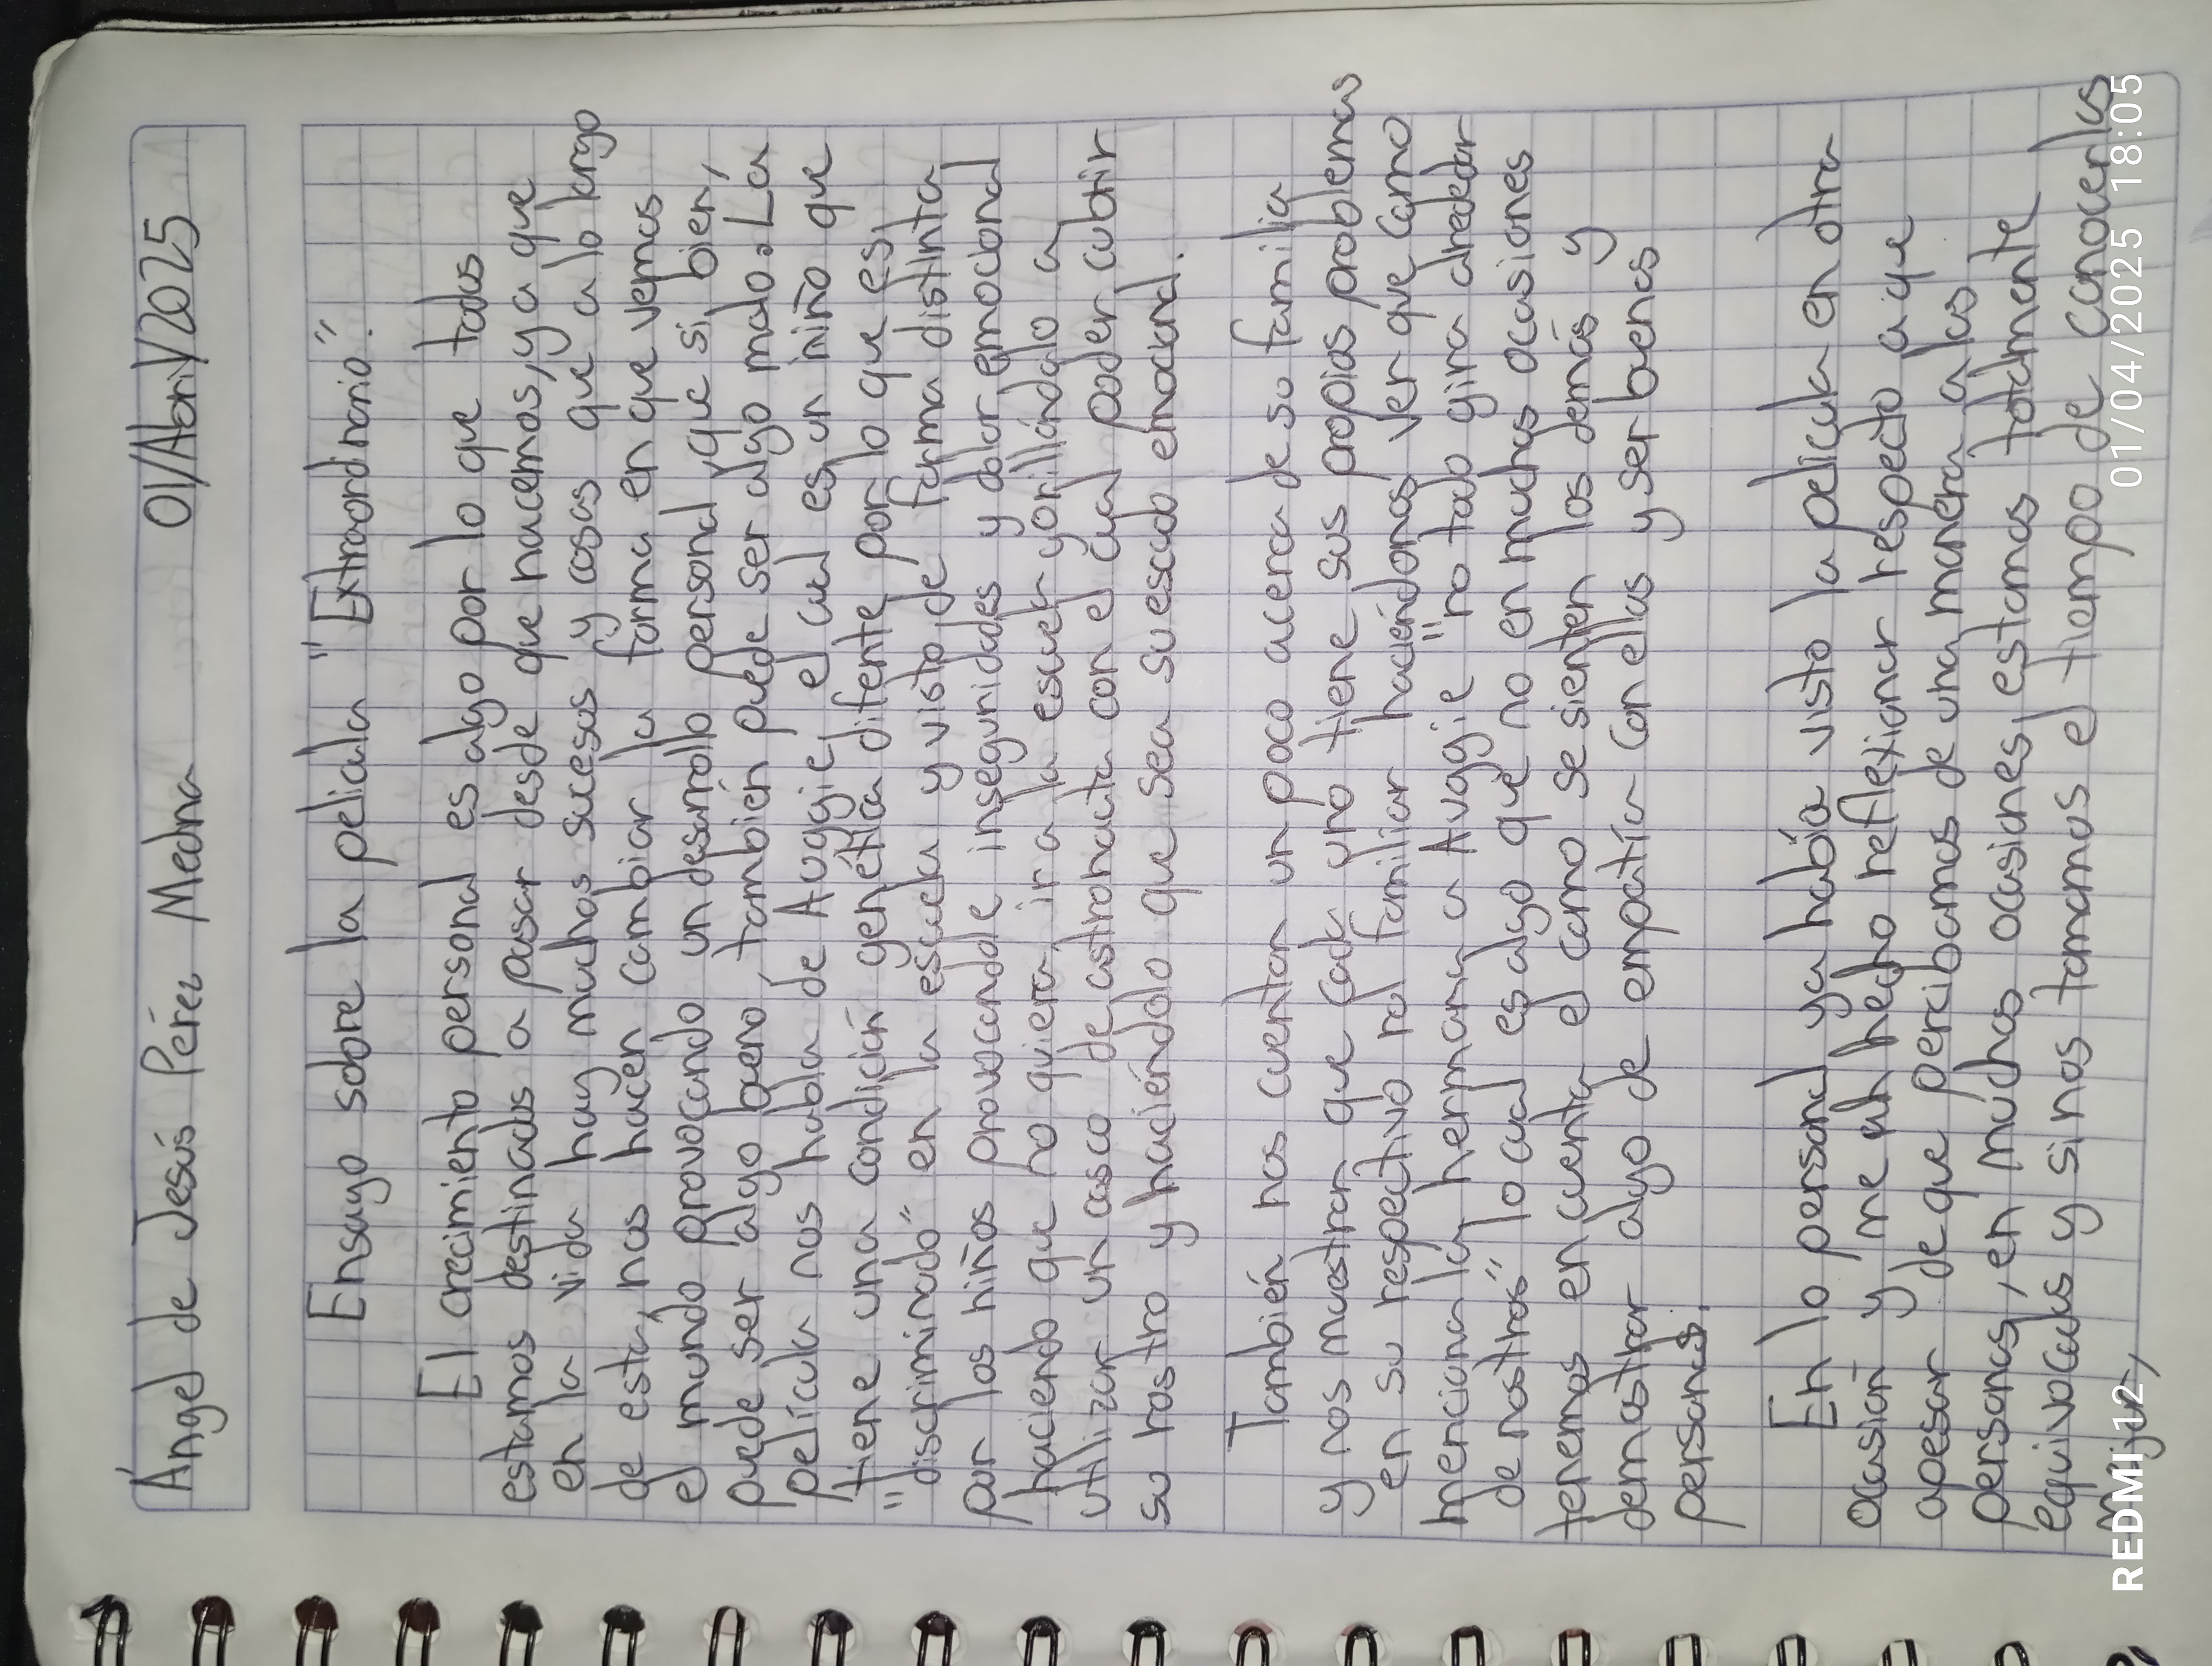 Ángel de Jesús Pérez Medna 01/Abril/2025
Ensayo sobre la pelicula "Extraordinario".
El crecimiento personal es algo por lo que todos
estamos destinados a pasar desde que nacemos, ya que
en la vida hay muchos sucesos y cosas que a lo largo
de esta, nos hacen cambiar la forma en que vemos
el mundo provocando un desarrollo personal, que si bien,
puede ser algo bueno, también puede ser algo malo. La
película nos habla de Auggie, el cual es un niño que
tiene una condición genética difente por lo que es
"discriminado" en la escuela y visto de forma distinta
por los niños provocandole inseguridades y dolor emocional
haciendo que no quiera ir a la escuela y orillándolo a
utilizar un casco de astronauta con el cual poder cubrir
su rostro y haciéndolo que sea su escudo emocional.
También nos cuentan un poco acerca de su familia
y nos muestran que cada uno tiene sus propios problemas
en su respectivo rol familiar haciéndonos ver que como
menciona la hermana a Auggie "no todo gira alrededor
de nostros" lo cual es algo que no en muchas ocasiones
tenemos en cuenta el como se sienten los demás y
demostrar algo de empatía con ellos y ser buenas
personas.
En lo personal ya había visto la pelicula en otra
ocasión y me hecho reflexionar respecto a que
apesar de que percibamos de una manera a las
personas, en muchas ocasiones estamos totalmente
equivocados y si nos tomamos el tiempo de conocerlas
mejor,
REDMI 12 01/04/2025 18:05